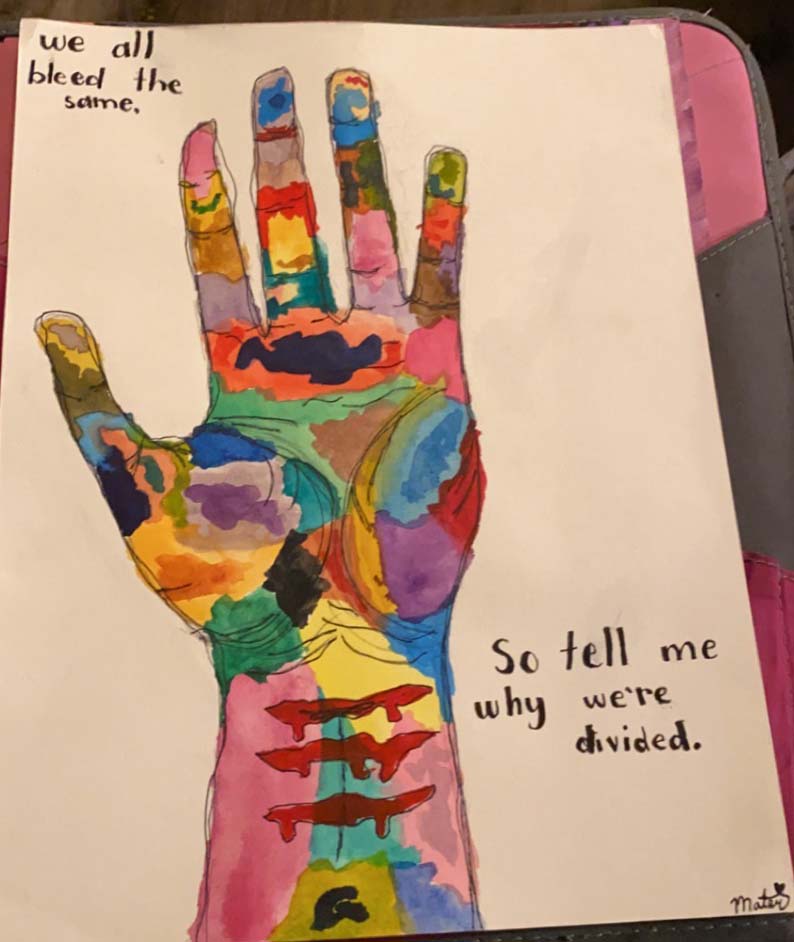 we all
bleed the
same.
So tell me
why we're
divided.